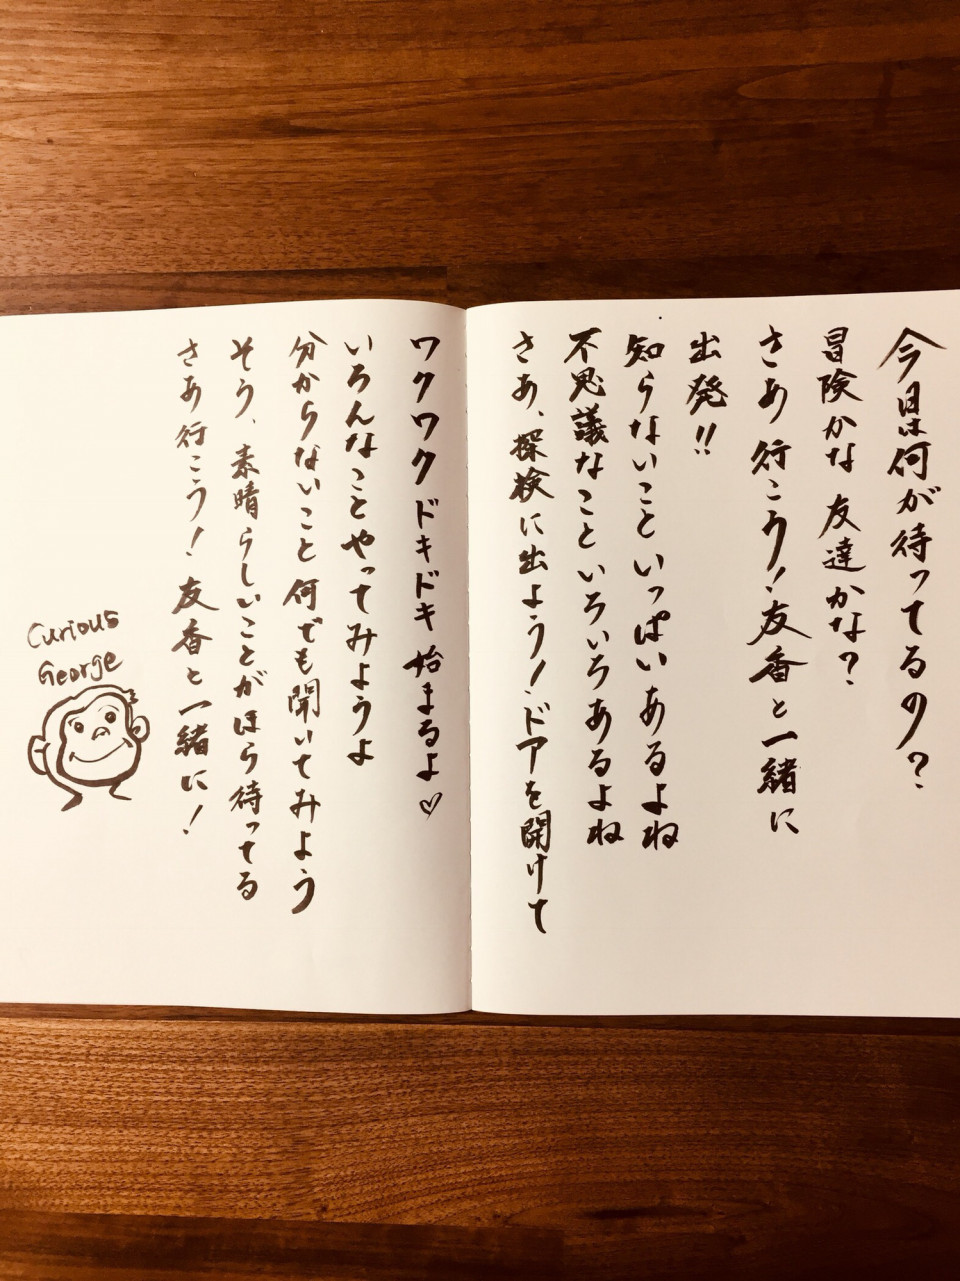 今日は何が待ってるの?
冒険かな 友達かな?
さあ 行こう!友香と一緒に
出発!!
知らないこといっぱいあるよね
不思議なこといろいろあるよね
さあ、探検に出よう!ドアを開けて
ワクワクドキドキ 始まるよ♡
いろんなことやってみようよ
分からないこと 何でも聞いてみよう
そう、素晴らしいことがほら待ってる
さあ行こう!友香と一緒に!
Curious
George